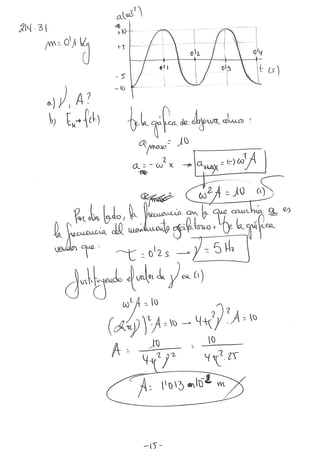 214.31
m=0'1 kg
a(ms⁻²)
+10
+5
-5
-10
0'1 0'2 0'3 0'4
t (s)
a) ν, A?
b) Ek = f(t)
De la gráfica se observa cómo:
a máx = 10
a = -ω² x → a máx = (-) ω² A
ω² A = 10 (1)
Por otro lado, la frecuencia con la que cambia a es
la frecuencia del movimiento oscilatorio. De la gráfica
vemos que:
T = 0'2 s → ν = 5 Hz
Sustituyendo el valor de ν en (1)
ω² A = 10
(2πν)² · A = 10 → 4π² ν² · A = 10
A = 10 / 4π² ν² = 10 / 4π² · 25
A = 1'013 · 10⁻² m
-15-